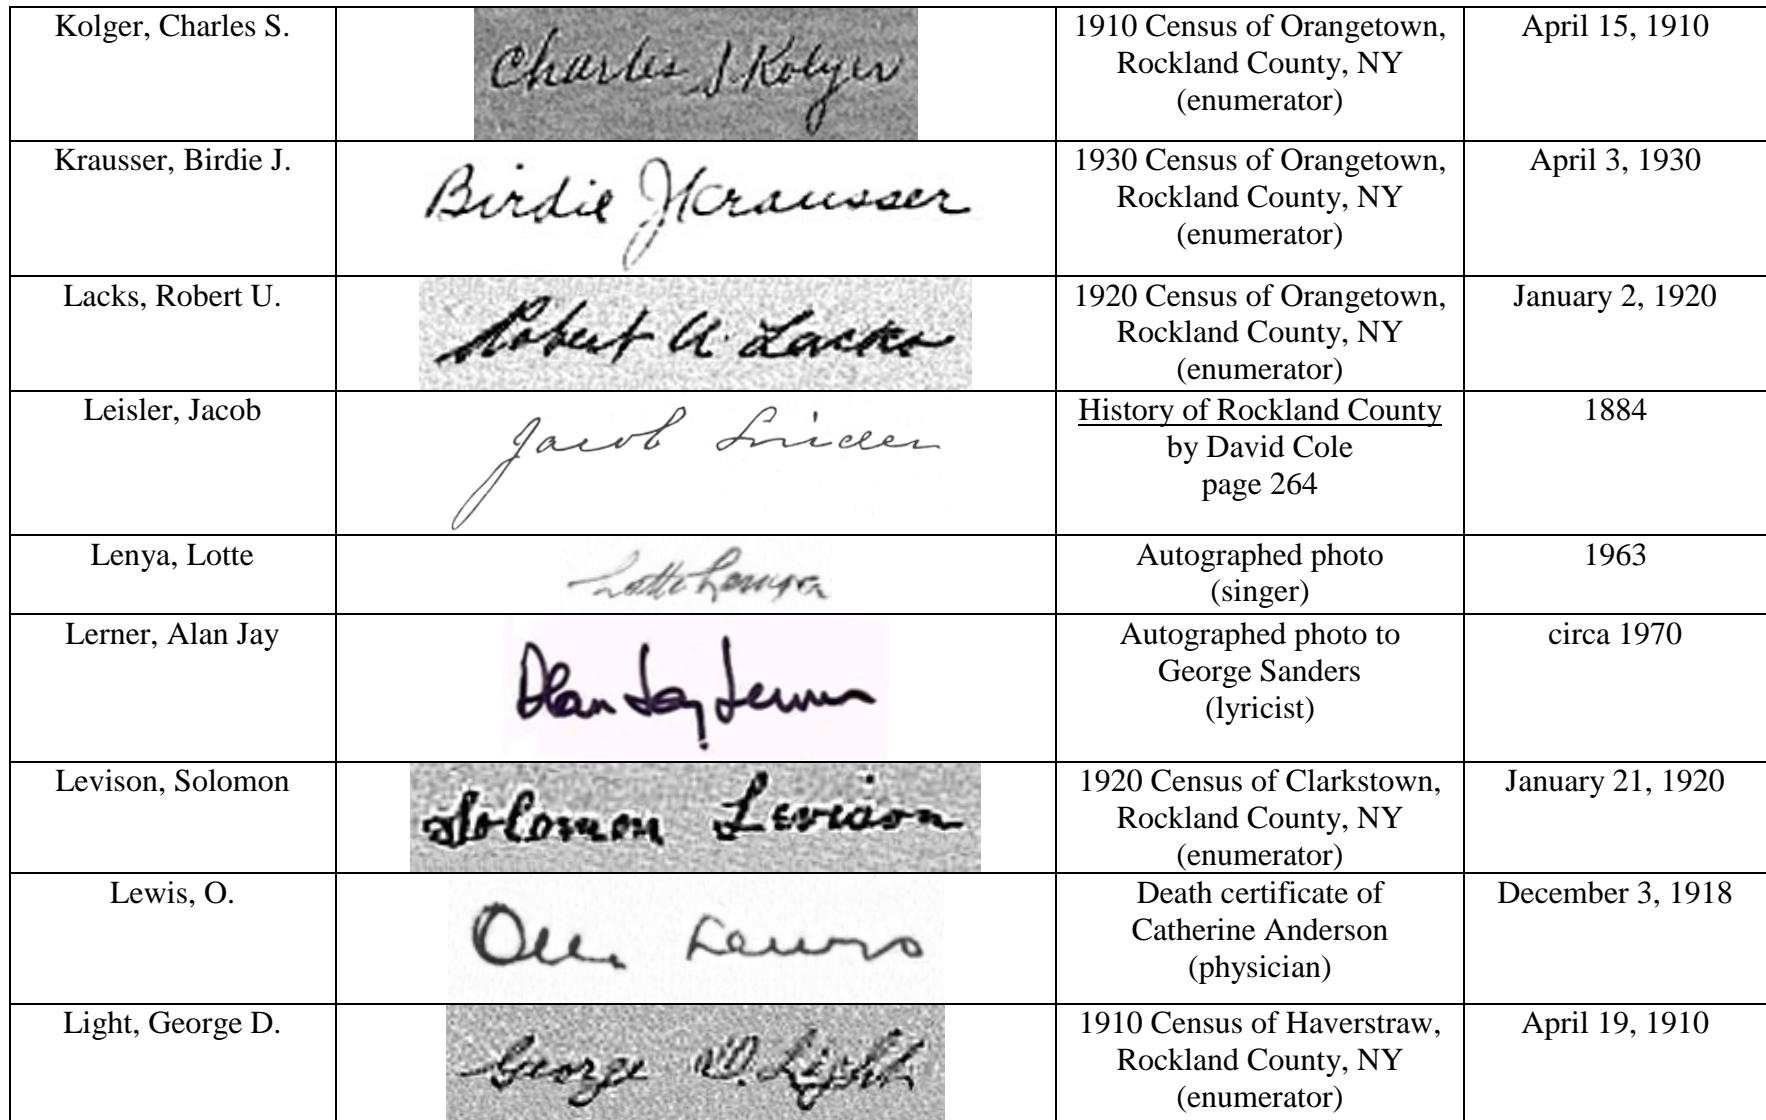 Kolger, Charles S.
Charles S Kolyer
1910 Census of Orangetown,
Rockland County, NY
(enumerator)
April 15, 1910
Krausser, Birdie J.
Birdie J Krausser
1930 Census of Orangetown,
Rockland County, NY
(enumerator)
April 3, 1930
Lacks, Robert U.
Robert U. Lacks
1920 Census of Orangetown,
Rockland County, NY
(enumerator)
January 2, 1920
Leisler, Jacob
Jacob
History of Rockland County
by David Cole
page 264
1884
Lenya, Lotte
Lotte Lenya
Autographed photo
(singer)
1963
Lerner, Alan Jay
Alan Jay Lerner
Autographed photo to
George Sanders
(lyricist)
circa 1970
Levison, Solomon
Solomon Levison
1920 Census of Clarkstown,
Rockland County, NY
(enumerator)
January 21, 1920
Lewis, O.
Lewis
Death certificate of
Catherine Anderson
(physician)
December 3, 1918
Light, George D.
George D. Light
1910 Census of Haverstraw,
Rockland County, NY
(enumerator)
April 19, 1910